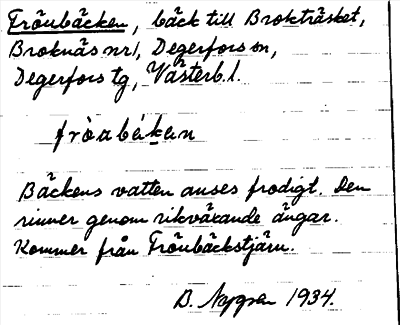 Fröubäcken, bäck till Brokträsket,
Broknäs nr 1, Degerfors sn,
Degerfors tg, Västerb. l.
fròabákan
Bäckens vatten anses frodigt. Den
rinner genom rikväxande ängar.
Kommer från Fröubäckstjärn.
B. Nygren 1934.